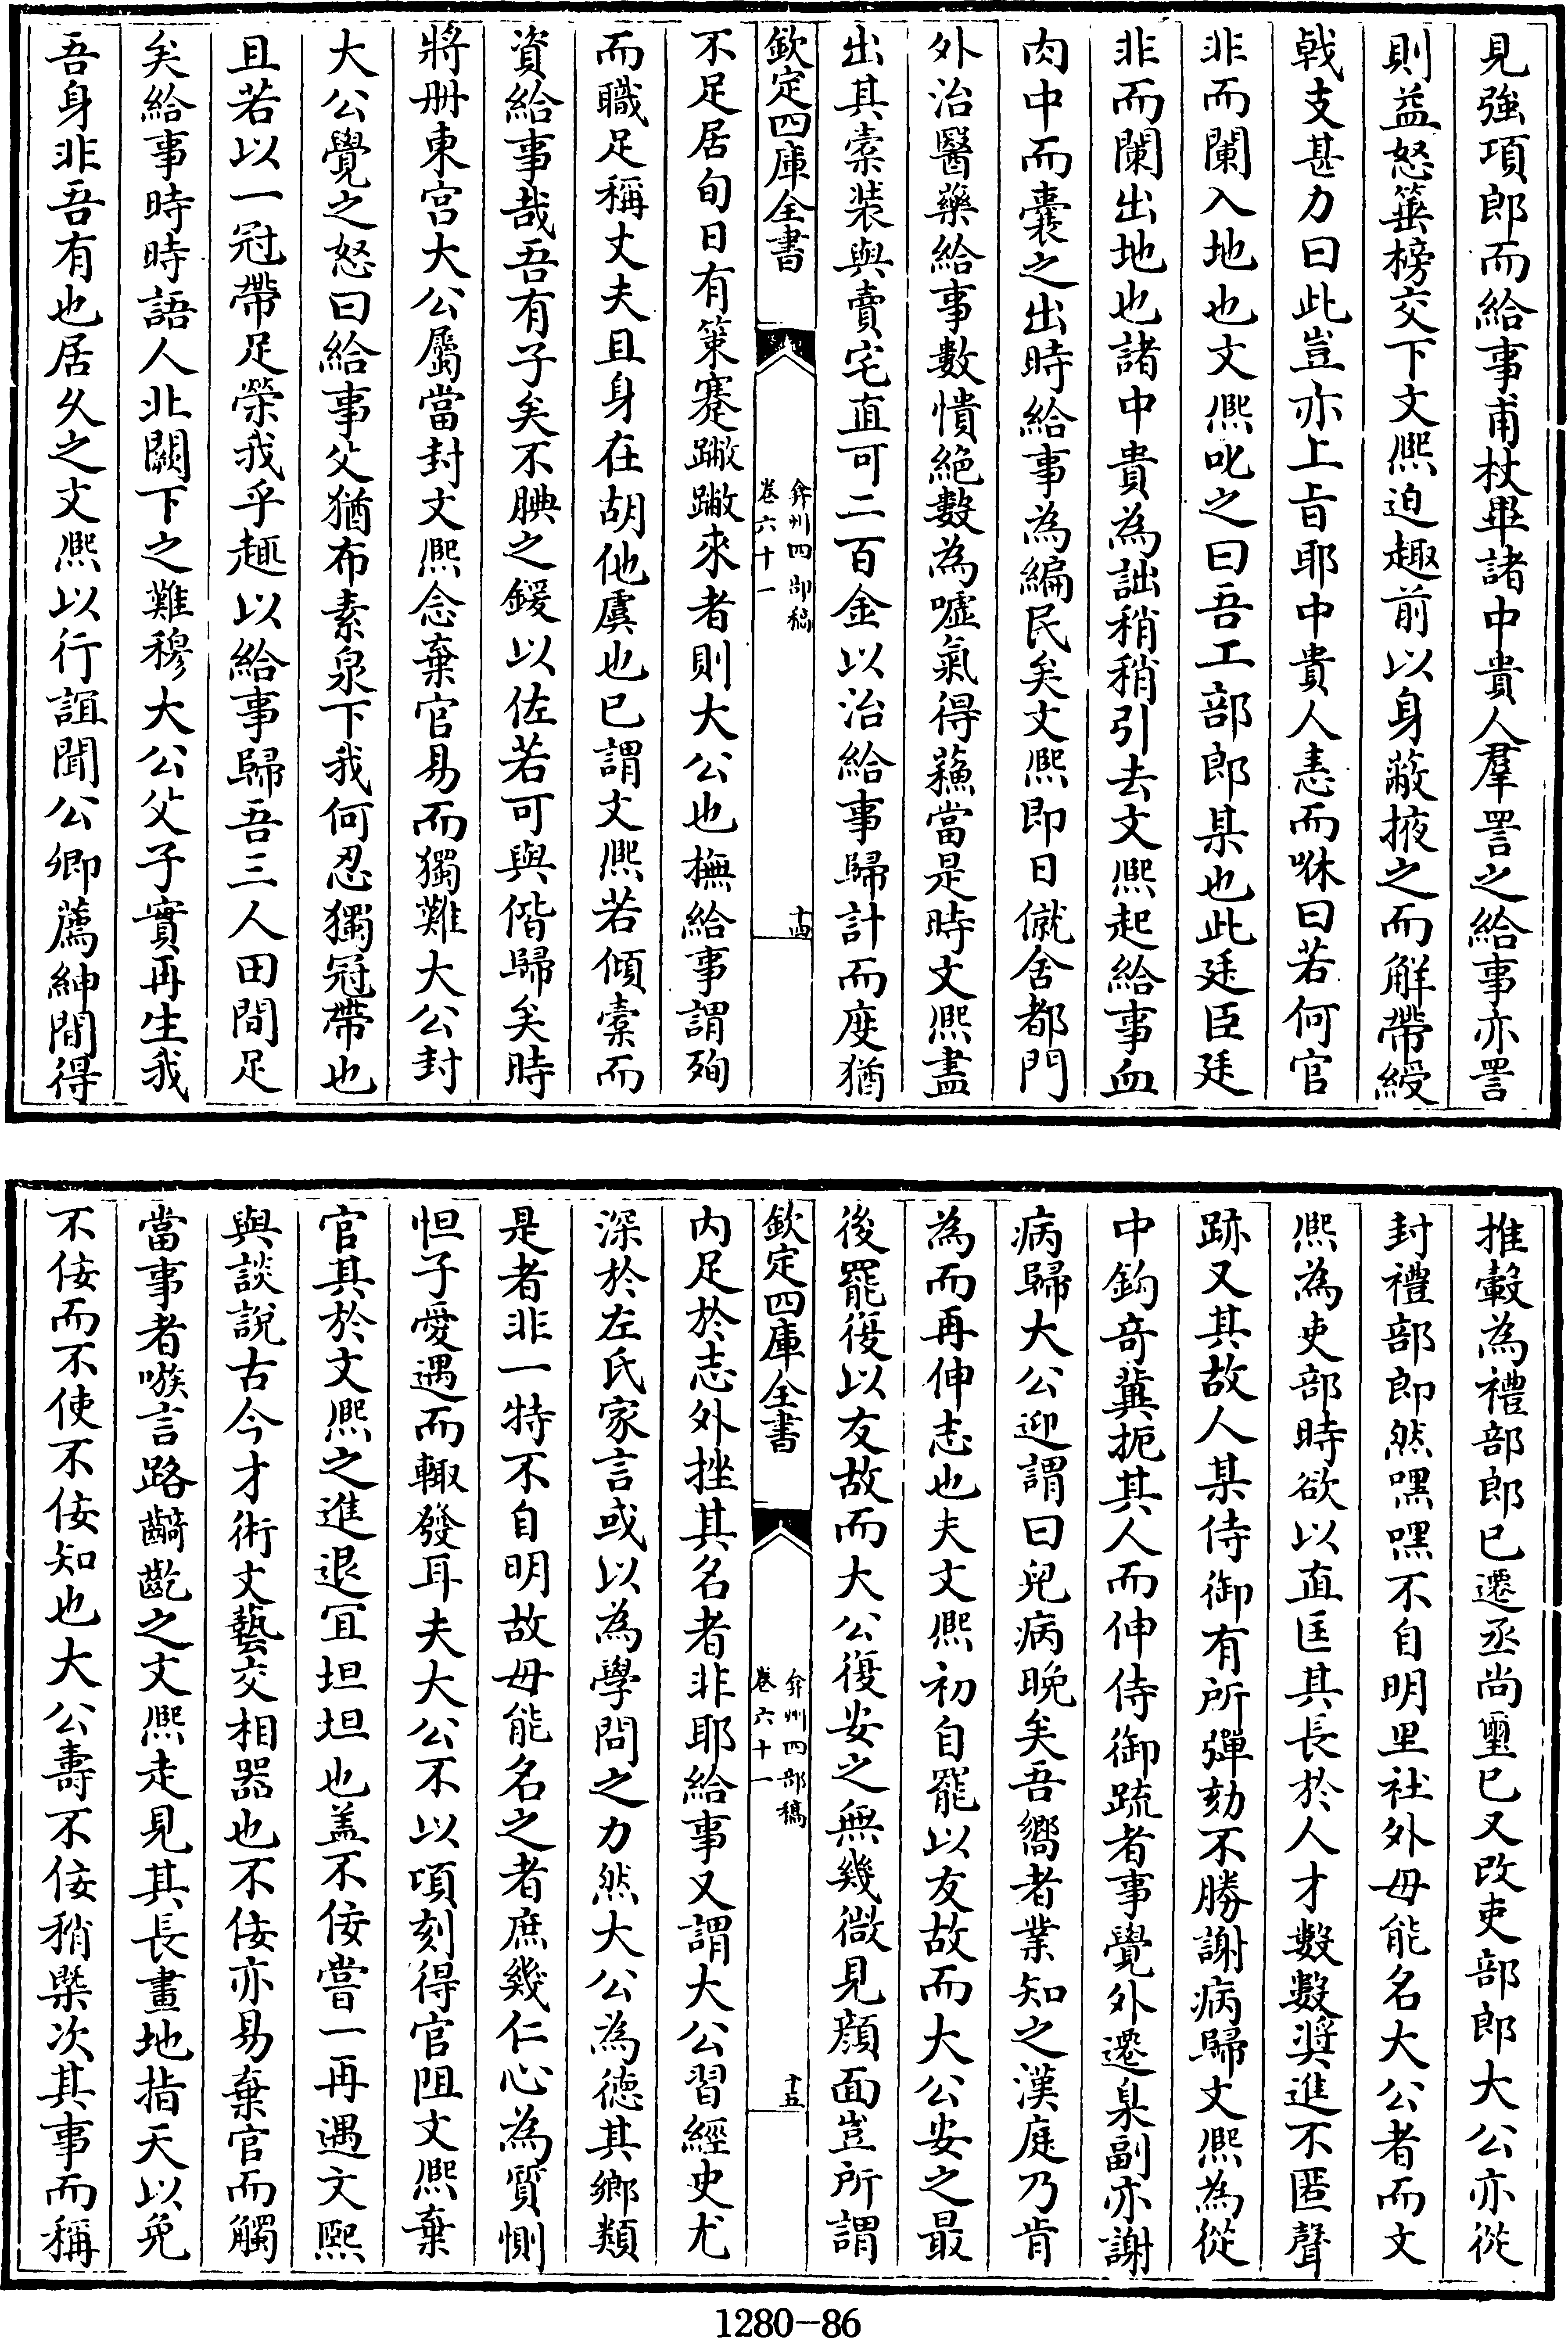 見強項郎而給事甫杖畢諸中貴人羣詈之給事亦詈
則益怒箠榜交下文熙迫趣前以身蔽掖之而解帶綬
戟支甚力曰此豈亦上㫖耶中貴人恚而咻曰若何官
非而闌入地也文熙叱之曰吾工部郎某也此廷臣廷
非而闌出地也諸中貴為詘稍稍引去文熙起給事血
肉中而囊之出時給事為編民矣文熙即日僦舍都門
外治醫藥給事數憒絶數為噓氣得蘇當是時文熙盡
出其橐裝與賣宅直可二百金以治給事歸計而度猶
欽定四庫全書
弇州四部稿
卷六十一
十四
不足居旬日有策蹇蹩蹩來者則大公也撫給事謂殉
而職足稱丈夫且身在胡他虞也已謂文熙若傾橐而
資給事哉吾有子矣不腆之鍰以佐若可與偕歸矣時
將册東宫大公屬當封文熙念棄官易而獨難大公封
大公覺之怒曰給事父猶布素泉下我何忍獨冠帶也
且若以一冠帶足榮我乎趣以給事歸吾三人田間足
矣給事時時語人北闕下之難穆大公父子實再生我
吾身非吾有也居久之文熙以行誼聞公卿薦紳間得
推轂為禮部郎已遷丞尚璽已又改吏部郎大公亦從
封禮部郎然嘿嘿不自明里社外毋能名大公者而文
熙為吏部時欲以直匡其長於人才數數奨進不匿聲
跡又其故人某侍御有所彈劾不勝謝病歸文熙為從
中鈎竒冀扼其人而伸侍御疏者事覺外遷臬副亦謝
病歸大公迎謂曰兒病晩矣吾嚮者業知之漢庭乃肯
為而再伸志也夫文熙初自罷以友故而大公安之最
後罷復以友故而大公復安之無幾微見顔面豈所謂
欽定四庫全書
弇州四部稿
卷六十一
十五
内足於志外挫其名者非耶給事又謂大公習經史尤
深於左氏家言或以為學問之力然大公為德其鄉類
是者非一特不自明故毋能名之者庶幾仁心為質惻
怛子愛遇而輙發耳夫大公不以項刻得官阻文熙棄
官其於文熙之進退冝坦坦也盖不佞嘗一再遇文熙
與談說古今才術文藝交相噐也不佞亦易棄官而觸
當事者嗾言路齮齕之文熙走見其長畫地指天以免
不佞而不使不佞知也大公壽不佞稍槩次其事而稱
1280-86